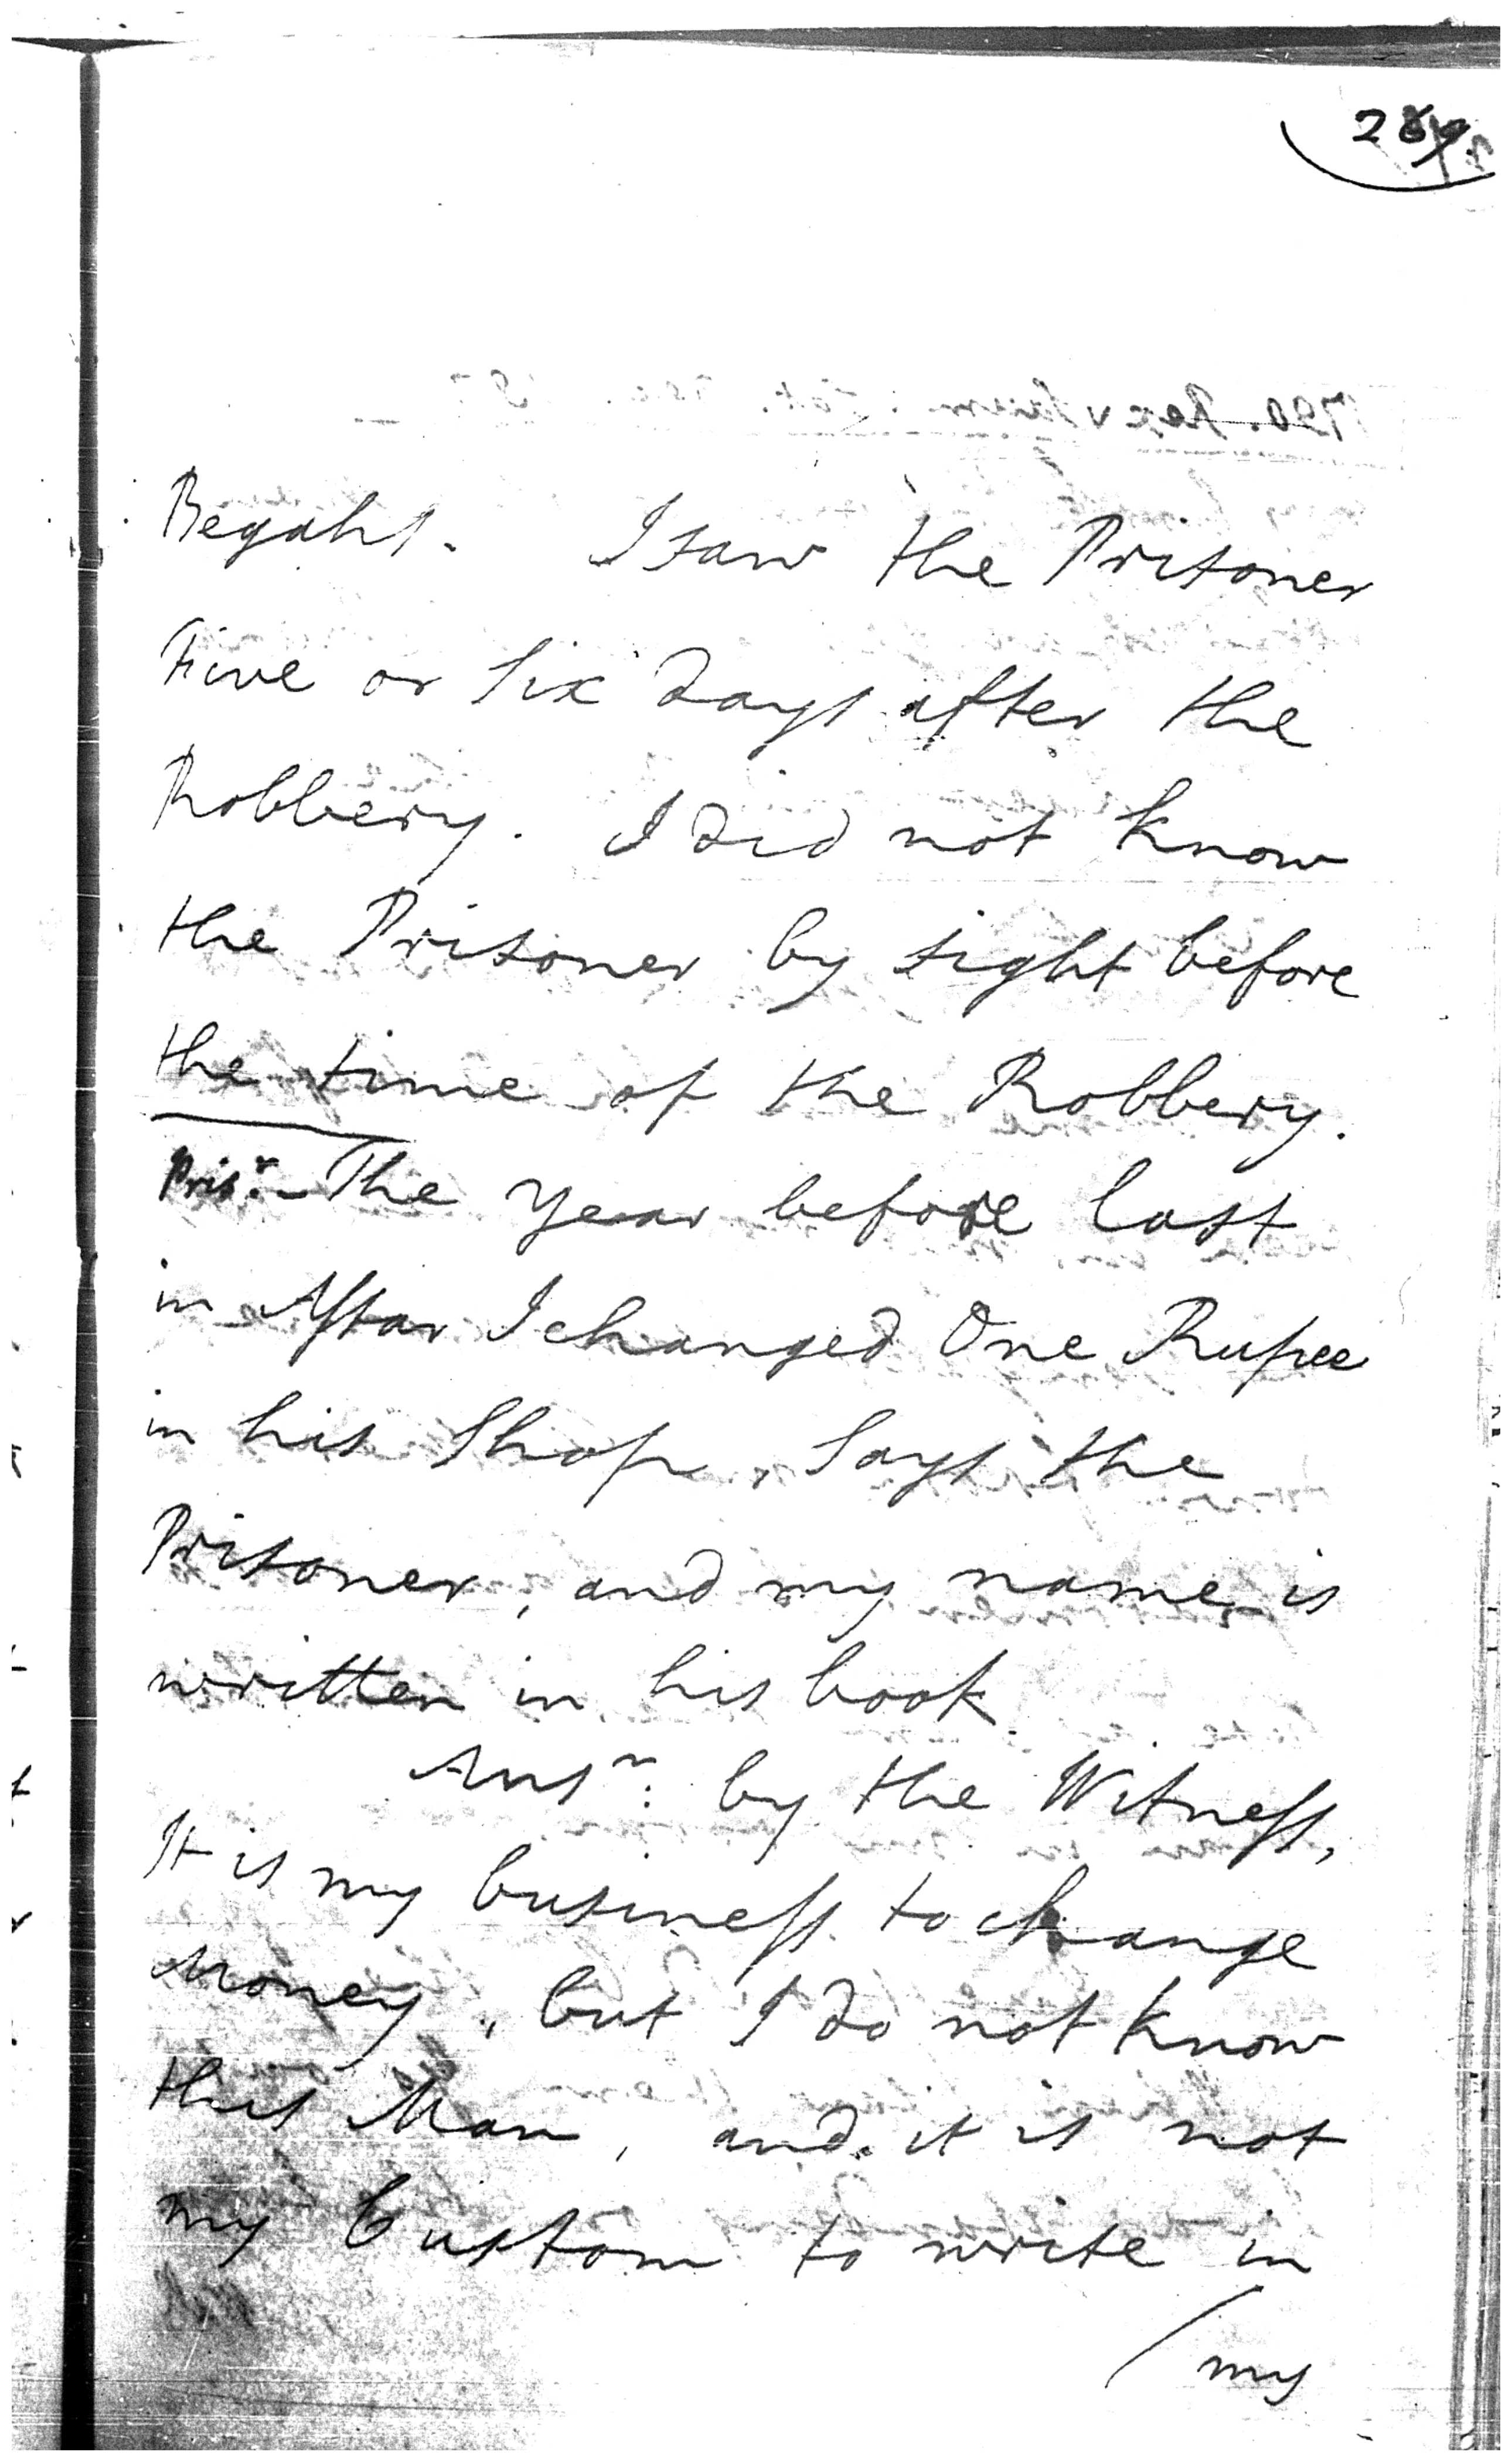 Begahs. I saw the Prisoner
Five or Six days after the
Robbery. I did not know
the Prisoner by sight before
the time of the Robbery.
Prisr.- The Year before last
in Assar I changed One Rupee
in his Shop, Says the
Prisoner, and my name is
written in his book
Ansr: by the Witness,
It is my business to change
Money, but I do not know
this Man, and it is not
my Custom to write in
/my